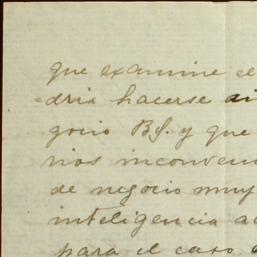 que examine el
=dria hacerse
gocio B.S. y que
rios inconveni
de negocio muy
inteligencia a
para el caso